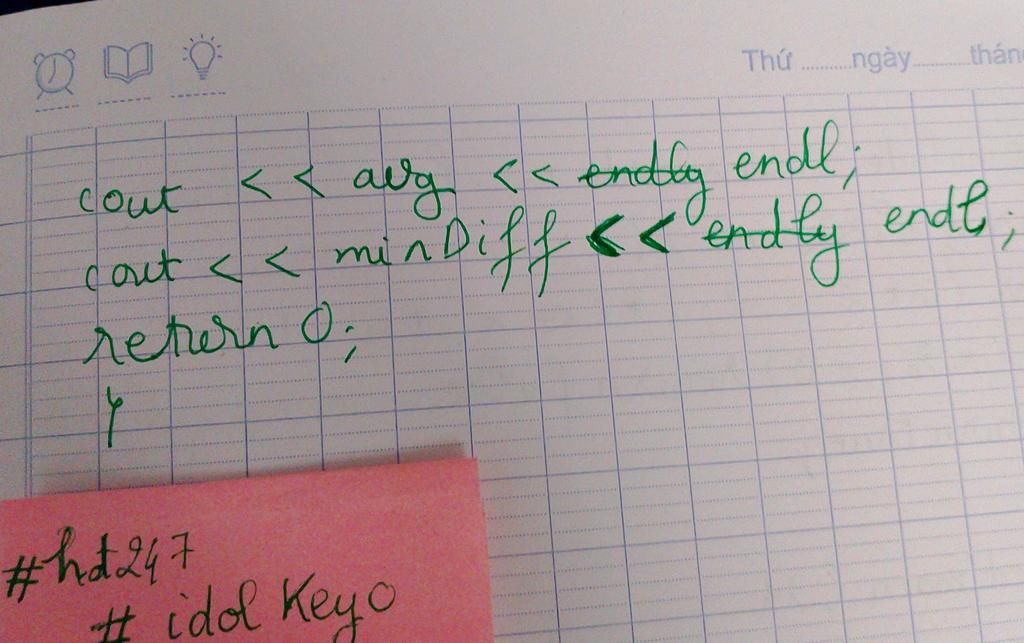 Thứ ..........ngày............thán
cout << avg << endly endl;
cout << minDiff << endly endl;
return 0;
}
#hdt247
# idol Keyo